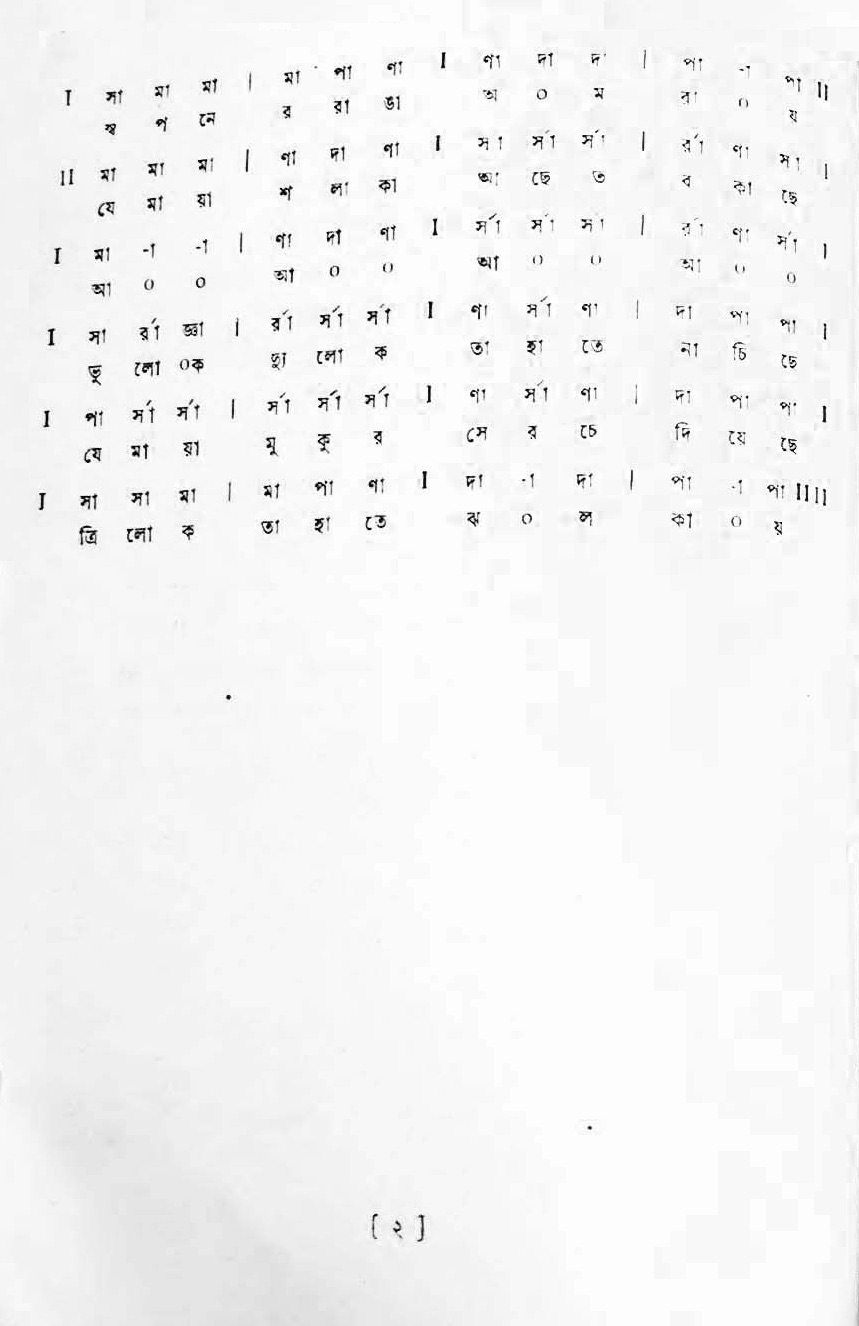 I সা মা মা | মা পা ণা I ণা দা দা | পা -া পা II
স্ব প নে র রা ঙা অ ০ ম রা ০ য়
II মা মা মা | ণা দা ণা I র্সা র্সা র্সা | র্রা ণা র্সা I
যে মা য়া শ লা কা আ ছে ত ব কা ছে
I মা -া -া | ণা দা ণা I র্সা র্সা র্সা | র্রা ণা র্সা I
আ ০ ০ আ ০ ০ আ ০ ০ আ ০ ০
I সা র্রা জ্ঞা | র্রা র্সা র্সা I ণা র্সা ণা | দা পা পা I
ভূ লো ০ক দ্যু লো ক তা হা তে না চি ছে
I পা র্সা র্সা | র্সা র্সা র্সা I ণা র্সা ণা | দা পা পা I
যে মা য়া মু কু র সে র চে দি য়ে ছে
I সা সা মা | মা পা ণা I দা -া দা | পা -া পা II II
ত্রি লো ক তা হা তে ঝ ০ ল কা ০ য়
[ ২ ]